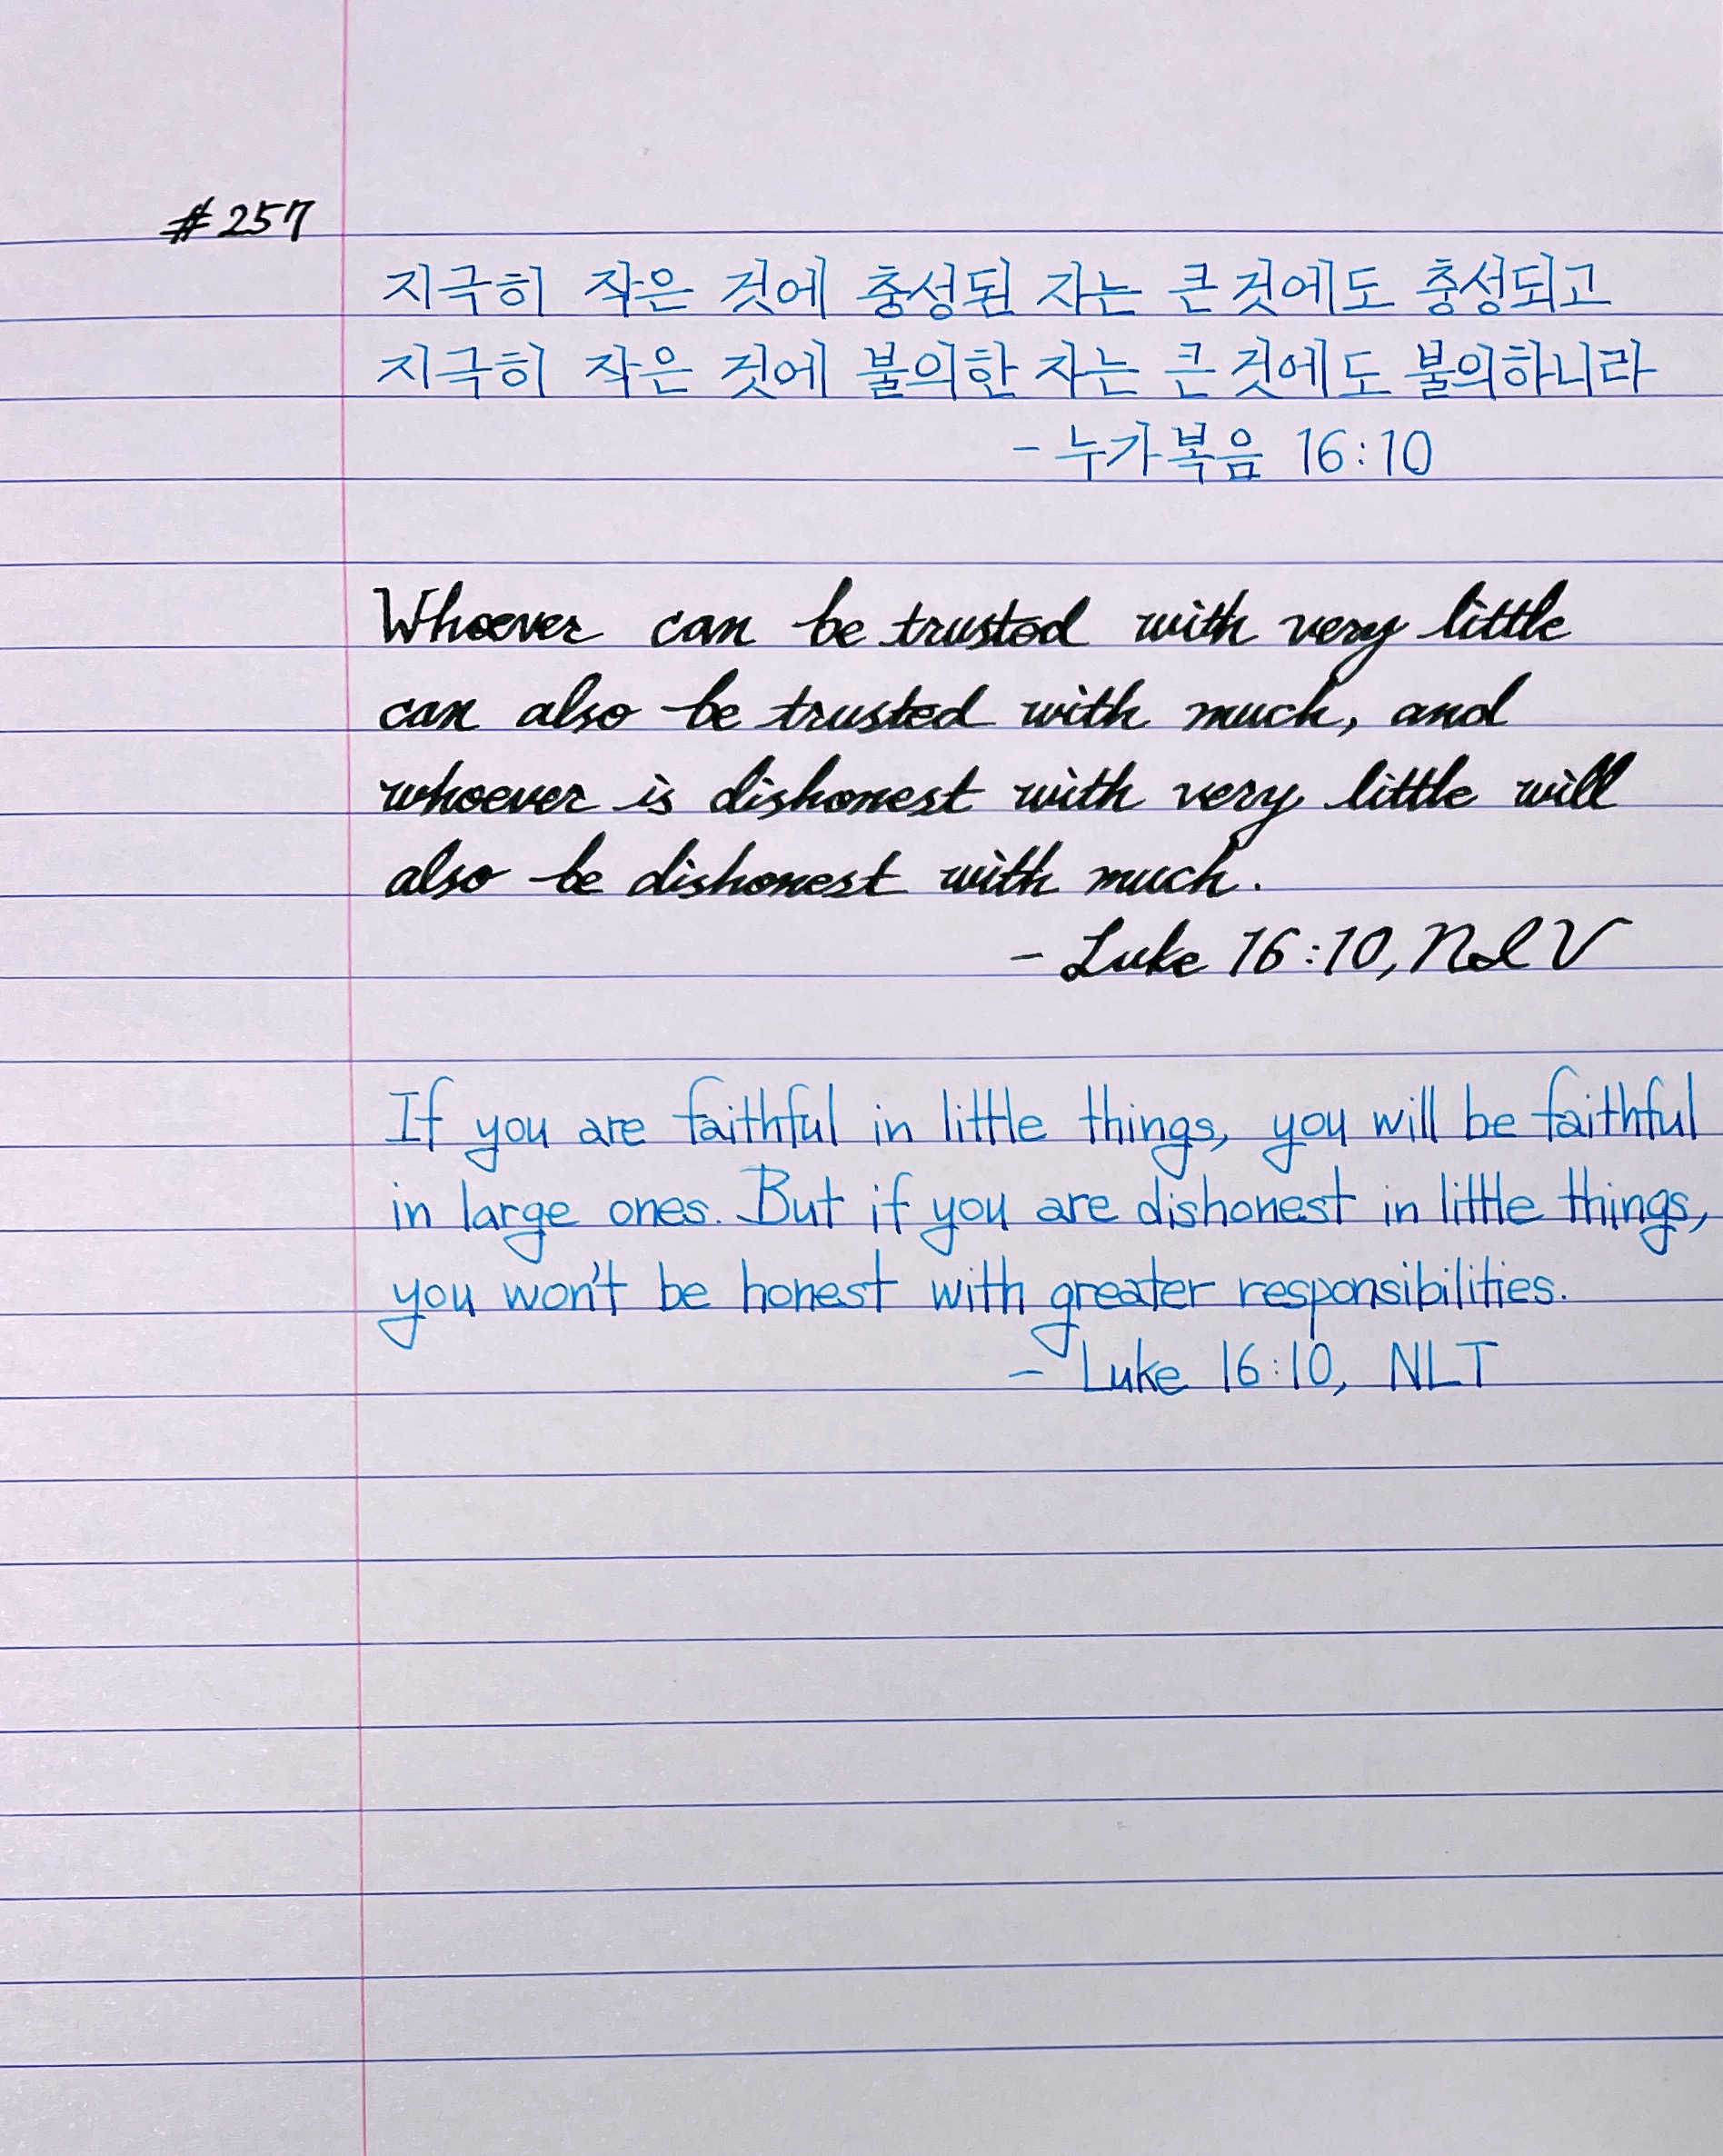 #257
지극히 작은 것에 충성된 자는 큰 것에도 충성되고
지극히 작은 것에 불의한 자는 큰 것에도 불의하니라
- 누가복음 16:10
Whoever can be trusted with very little
can also be trusted with much, and
whoever is dishonest with very little will
also be dishonest with much.
- Luke 16:10, NIV
If you are faithful in little things, you will be faithful
in large ones. But if you are dishonest in little things,
you won't be honest with greater responsibilities.
- Luke 16:10, NLT